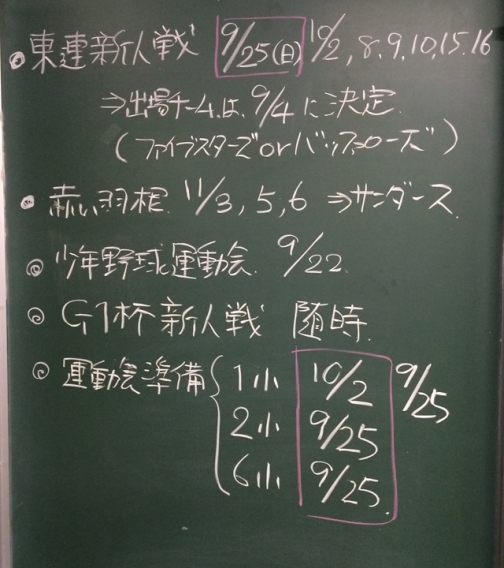 ● 東連新人戦 9/25(日) 10/2, 8, 9, 10, 15, 16
⇒出場チームは、9/4 に決定.
(ファイブスターズorバッファローズ)
● 赤い羽根. 11/3, 5, 6 ⇒サンダース.
◎ 少年野球運動会. 9/22.
◎ G1杯新人戦 随時.
◎ 運動会準備 { 1小 10/2 9/25
2小 9/25
6小 9/25.